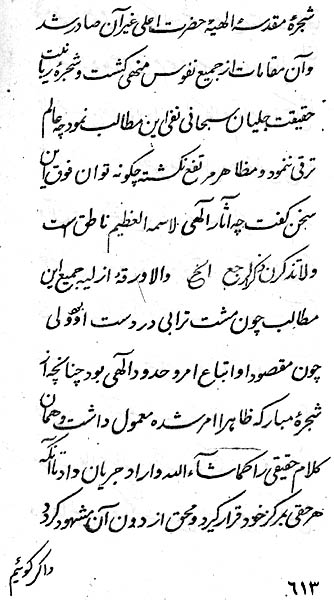 شجرهٔ مقدسه الهیه حضرت اعلی غیر آن صادر شد
و آن مقامات از جمیع نفوس منتهی گشت و شجرهٔ ربانیت
حقیقت جلیان سبحانی نفی این مطالب نمود چه عالم
ترقی ننمود و مظاهر مرتفع نگشته چگونه توان فوق این
سخن گفت چه آثار الهی لاسمه العظیم ناطق است
ولا تذکرن ذکر الرجع الخ والا ورقهٔ ازلیه جمیع این
مطالب چون مشت ترابی در دست او بود ولی
چون مقصود او اتباع امر و حدود الهی بود چنانچه از
شجرهٔ مبارکه ظاهرا امر شده معمول داشت و همان
کلام حقیقی را کما شاء الله و اراد جریان داد تا آنکه
هر حقی بمرکز خود قرار گیرد و محق از دون آن مشهود گردد
و اگر گوئیم
٦١٣